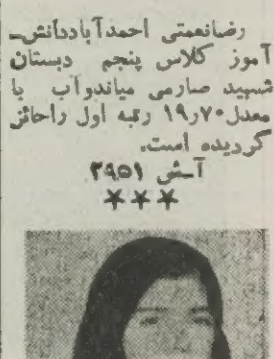 رضانعمتی احمدآباددانش‌ـ
آموز کلاس پنجم دبستان
شهید صارمی میاندوآب با
معدل ۱۹٫۷۰ رتبه اول راحائز
گردیده است.
آ‌ـش ۲۹۵۱
***